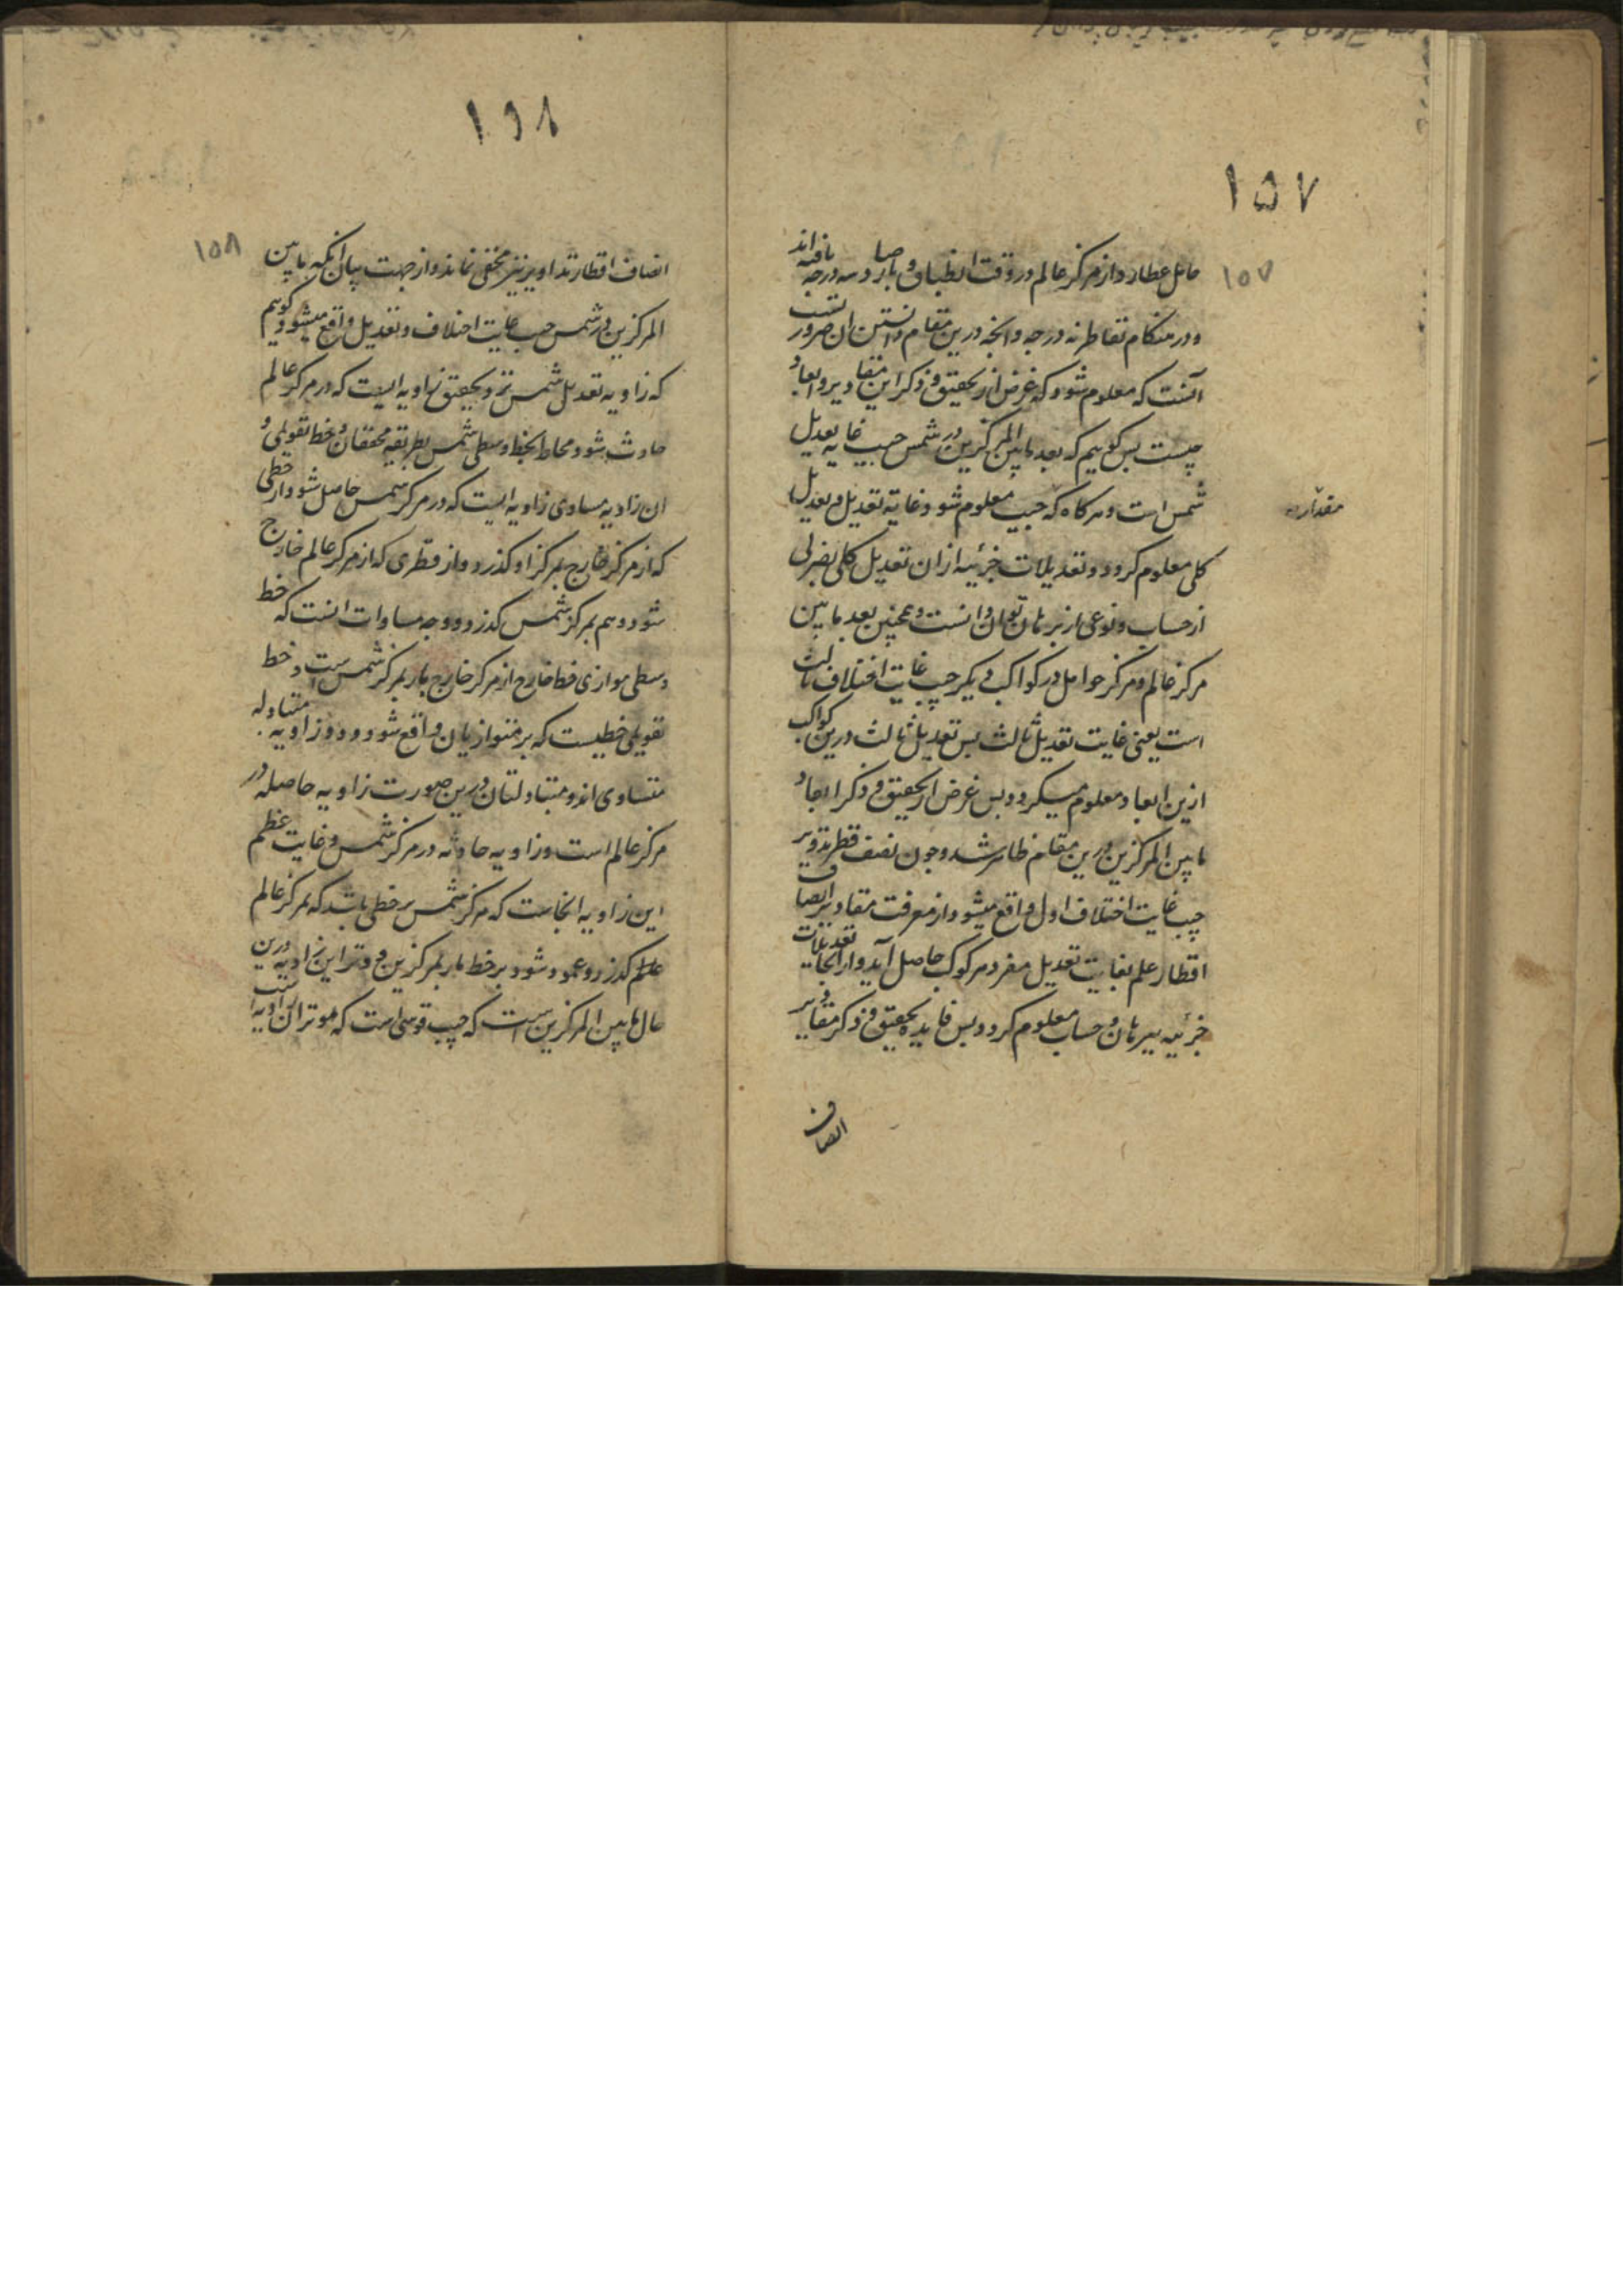 ١٥٧
١٥٧
حامل عطارد از مرکز عالم در وقت انطباق بارصاد سه درجه یافته‌اند
و در هنکام تقاطر نه درجه و انچه درین مقام دانستن ان ضرور تست
آنست که معلوم شود که غرض از تحقیق و ذکر این مقادیر و ابعاد
چیست بس کوییم که بعد مابین المرکزین در شمس جیب غایه تعدیل
شمس است و هر کاه که جیب معلوم شود غایة تعدیل و تعدیل
مقدار
کلی معلوم کردد و تعدیلات جزئیه ازان تعدیل کلی بضربی
از حساب و نوعی از برهان توان دانست و همچنین بعد مابین
مرکز عالم و مرکز حوامل در کواکب دیکر جیب غایت اختلاف ثالث
است یعنی غایت تعدیل ثالث بس تعدیل ثالث درین کواکب
ازین ابعاد معلوم میکردد بس غرض از تحقیق و ذکر ابعاد
مابین المرکزین درین مقام ظاهر شد و چون نصف قطر تدویر
جیب غایت اختلاف اول واقع میشود از معرفت مقادیر انصاف
اقطار علم بغایت تعدیل مفرد هر کوکب حاصل آید و از انجا تعدیلات
جزئیه ببرهان و حساب معلوم کردد بس فایده تحقیق و ذکر مقادیر
انصاف
١٥٨
١٥٨
انصاف اقطار تداویر نیز مخفی نماند و از جهت بیان انکه مابین
المرکزین در شمس جیب غایت اختلاف و تعدیل واقع میشود کوییم
که زاویه تعدیل شمس نزد تحقیق زاویه ایست که در مرکز عالم
حادث شود محاط بخط وسطی شمس بطریقه محققان و خط تقویمی و
ان زاویه مساوی زاویه ایست که در مرکز شمس حاصل شود از خطی
که از مرکز خارج بمرکز او کذرد و از قطری که از مرکز عالم خارج
شود و هم بمرکز شمس کذرد و وجه مساوات انست که خط
وسطی موازی خط خارج از مرکز خارج مار بمرکز شمس است و خط
تقویمی خطیست که بر متوازیان واقع شود و دو زاویه متبادله
متساوی اند و متبادلتان درین صورت زاویه حاصله در
مرکز عالم است و زاویه حادثه در مرکز شمس و غایت عظم
این زاویه انجاست که مرکز شمس بر خطی باشد که بمرکز عالم
عالم کذرد و عمود شود بر خط مار بمرکزین و وتر این زاویه درین
حال مابین المرکزین است که جیب قوسی است که موتر ان زاویه است